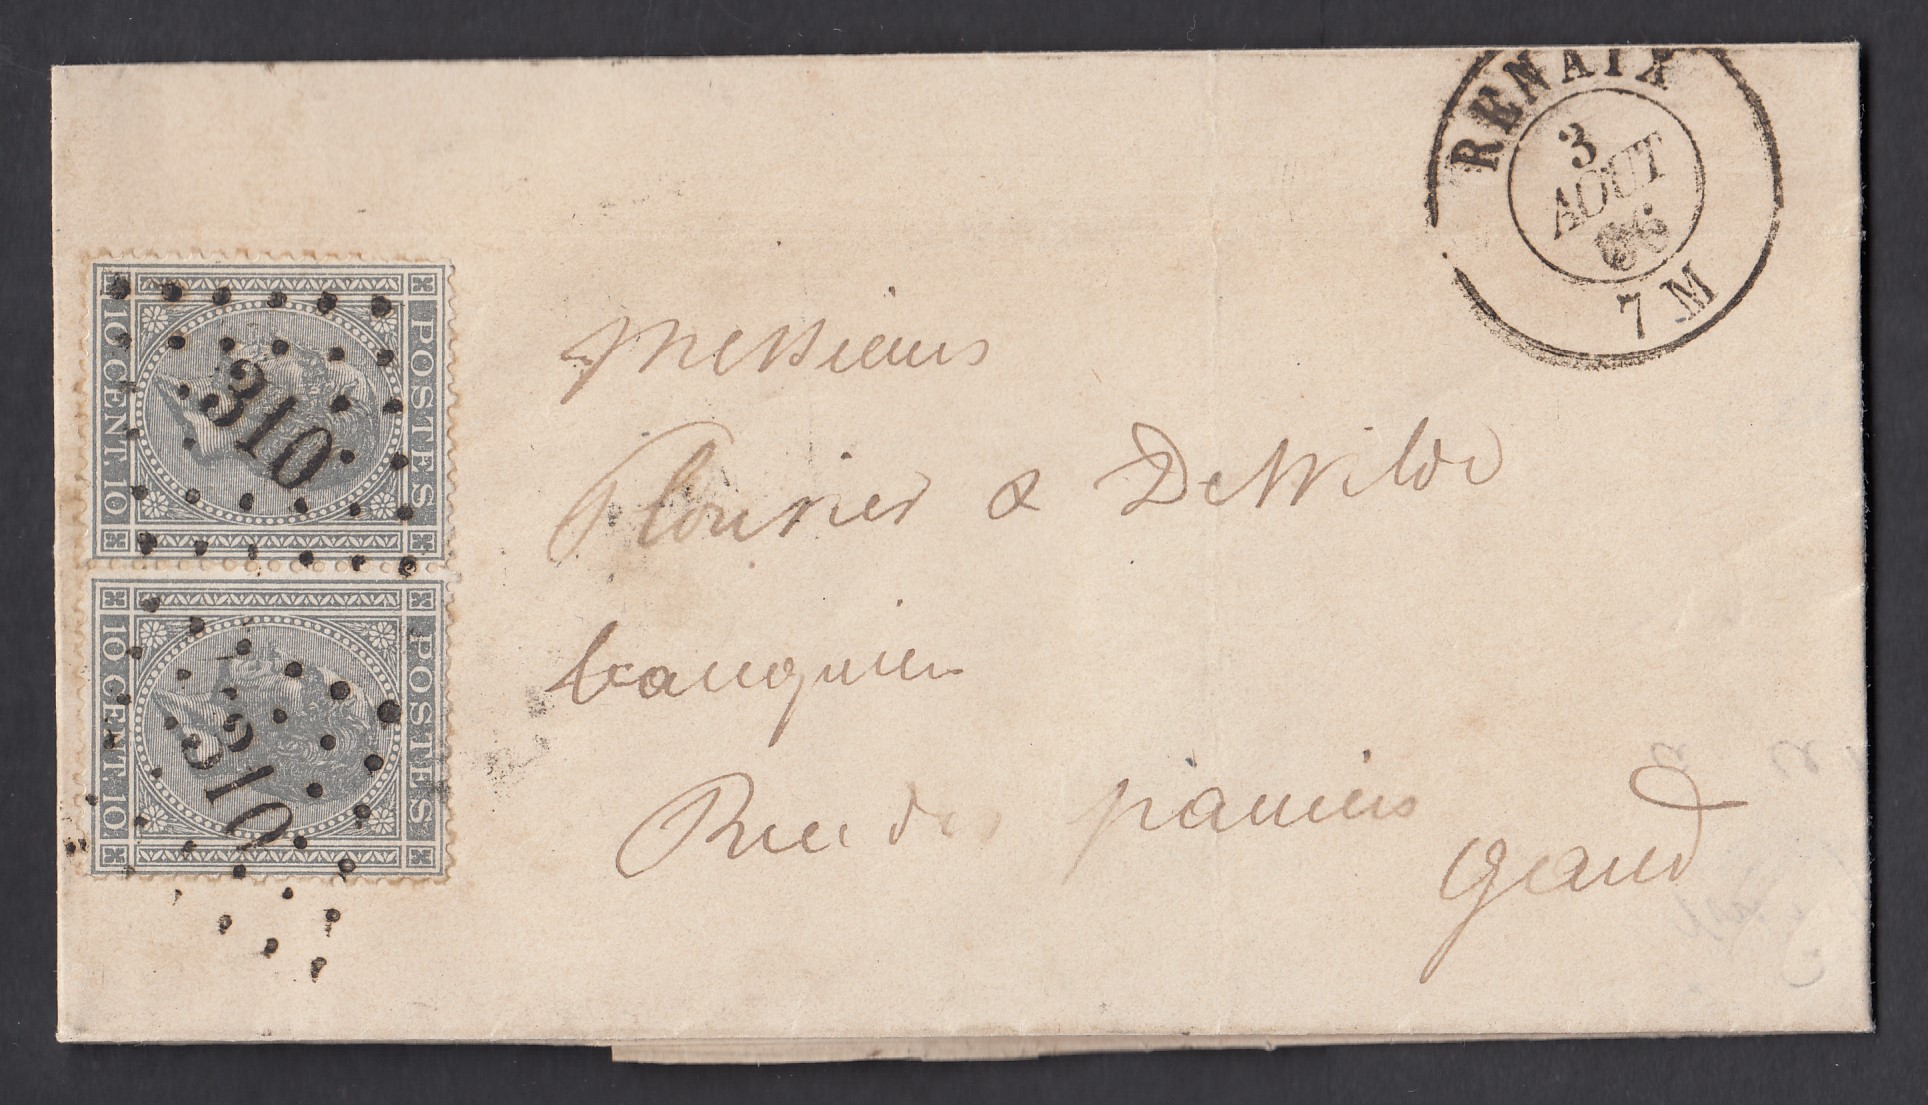 RENAIX
3
AOUT
66
7 M
POSTES
10 CENT. 10
310
POSTES
10 CENT. 10
310
Messieurs
& DeWilde
banquiers
Rue des paniers
gand